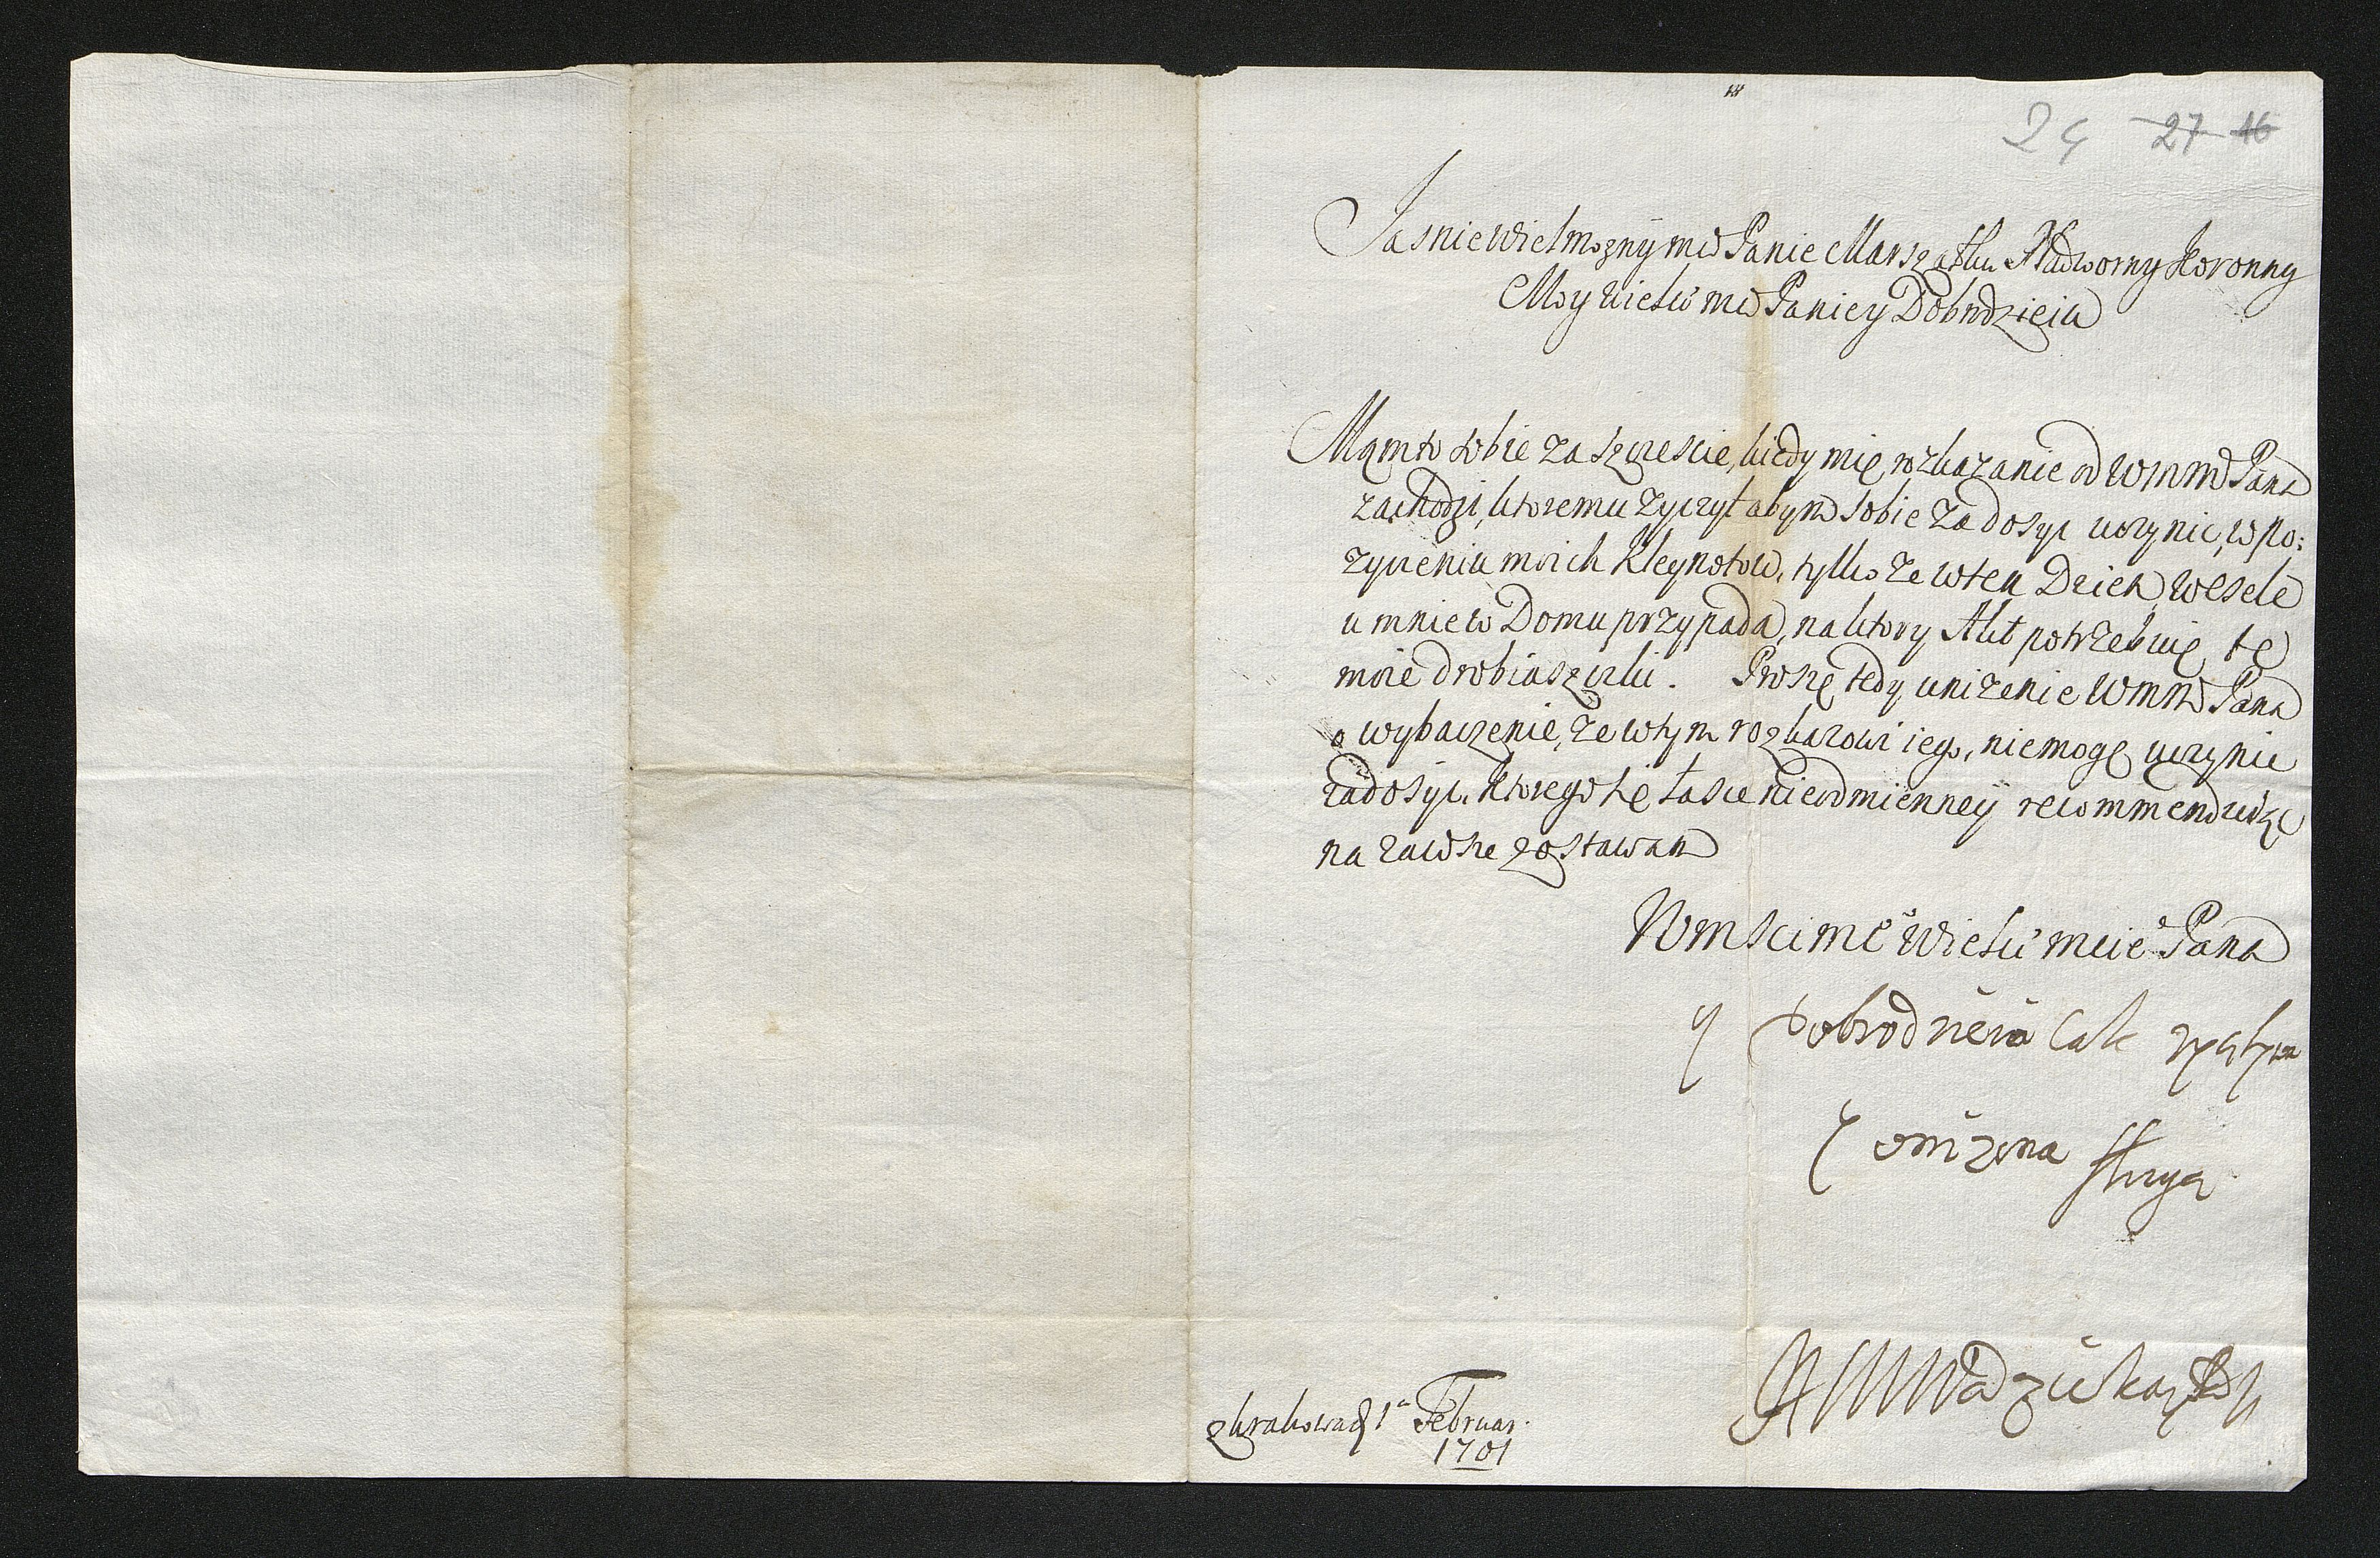 24 27 16
Jasnie Wielmozny mċ Panie Marszałku Nadworny Koronny
Moy Wielċe mċ Panie y Dobrodzieiu
Mąm to sobie za szczescie, kiedy mię rozkazanie od WMM Pana
zachodzi, ktoremu zyczył abym sobie zadosyc uczynic, w po:
zyczeniu moich Kleynotow, tylko ze wten Dzien, Wesele
u mnie w Domu przypada, na ktory Akt potrzebuię te
moie drobiaszczki. Proszę tedy unizenie WMM Pana
o wybaczenie, ze wtym rozkazowi iego, niemogę uczynic
zadosyc, ktorego się łasce nieodmienney recommenduiąc
na zawsze zostawam
Wm sci mė Wielċe mċie Pana
y Dobrodzieia Cale zycząca
y onizona sługa
z Krakowa d 1a Februar.
1701